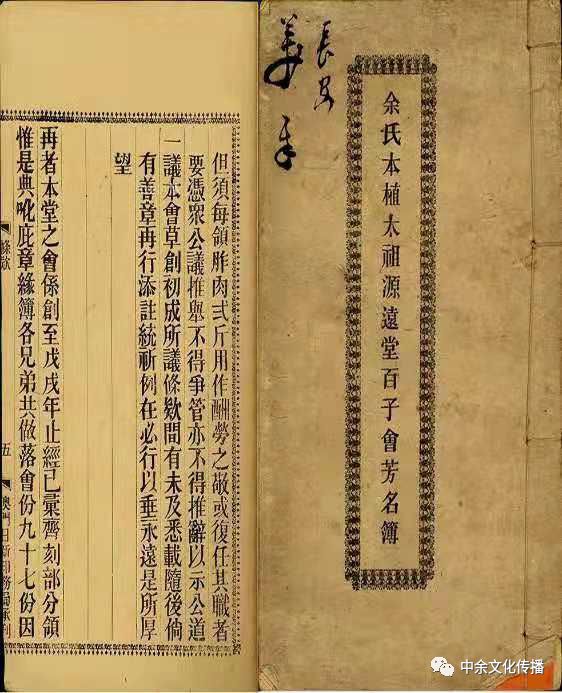 余氏本植太祖源遠堂百子會芳名簿
長
但須每領胙肉弍斤用作酬勞之敬或復任其職者
要憑衆公議推舉不得爭管亦不得推辭以示公道
一議本會草創初成所議條欵間有未及悉載隨後倘
有善章再行添註統祈例在必行以垂永遠是所厚
望
再者本堂之會係創至戊戌年止經已彙齊刻部分領
惟是典吡庇章緣簿各兄弟共做落會份九十七份因
條欵
五
澳門日新印務局承刊
中余文化传播